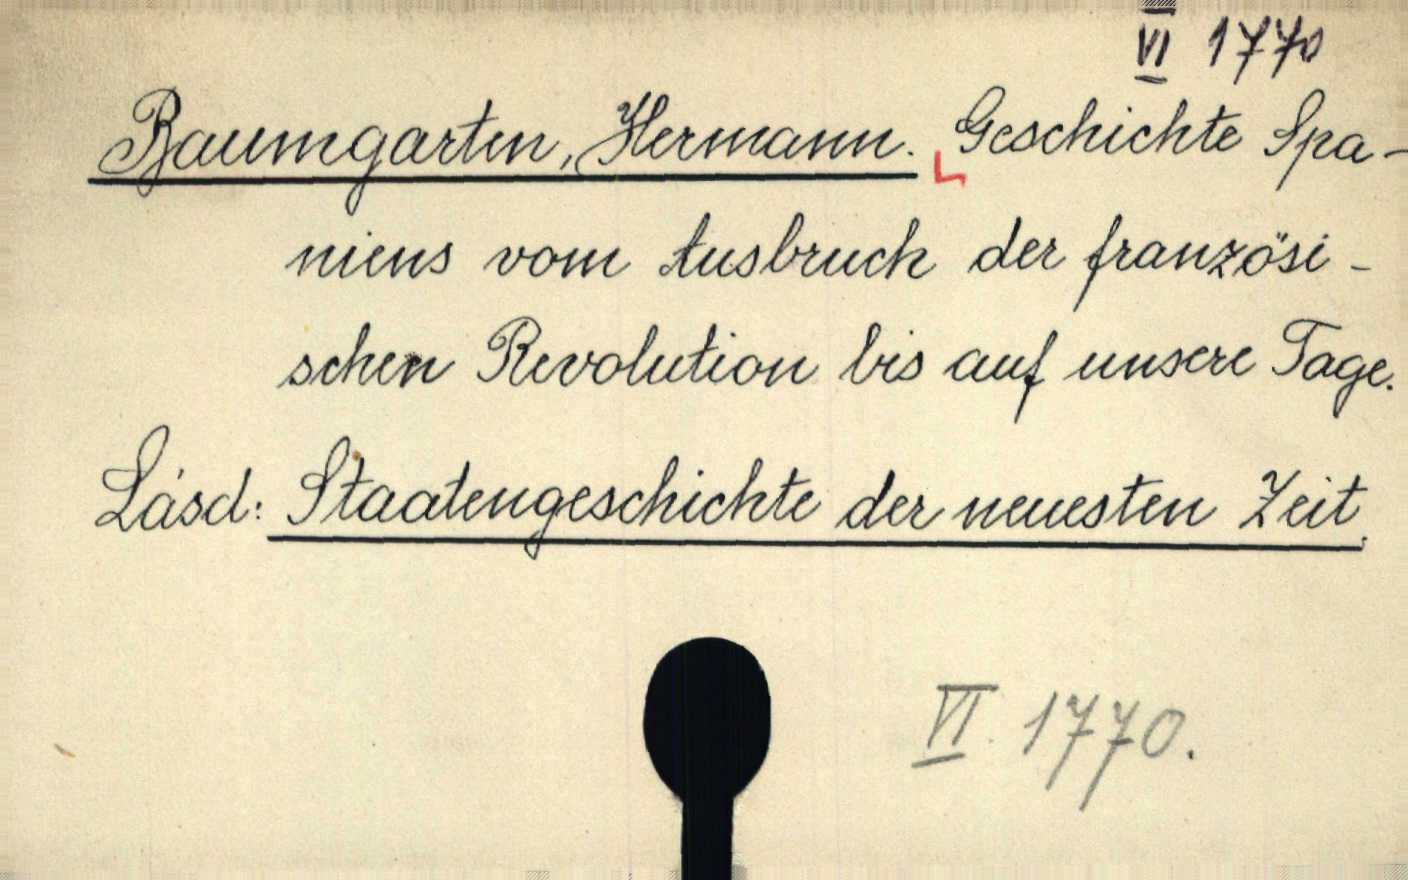 VI 1770
Baumgarten, Hermann. Geschichte Spa-
niens vom Ausbruch der französi-
schen Revolution bis auf unsere Tage.
Lásd: Staatengeschichte der neuesten Zeit.
VI. 1770.